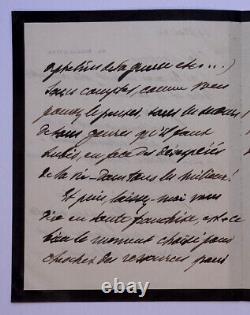 de la guerre etc...)
sans compter comme vous
pouvez le penser, sans les
de tous genres qu'il faut
subir, en face des
de la vie dans tous les milieux!
Et puis, laissez-moi vous
dire en toute franchise, est-ce
bien le moment choisi pour
chercher des ressources pour
ebay